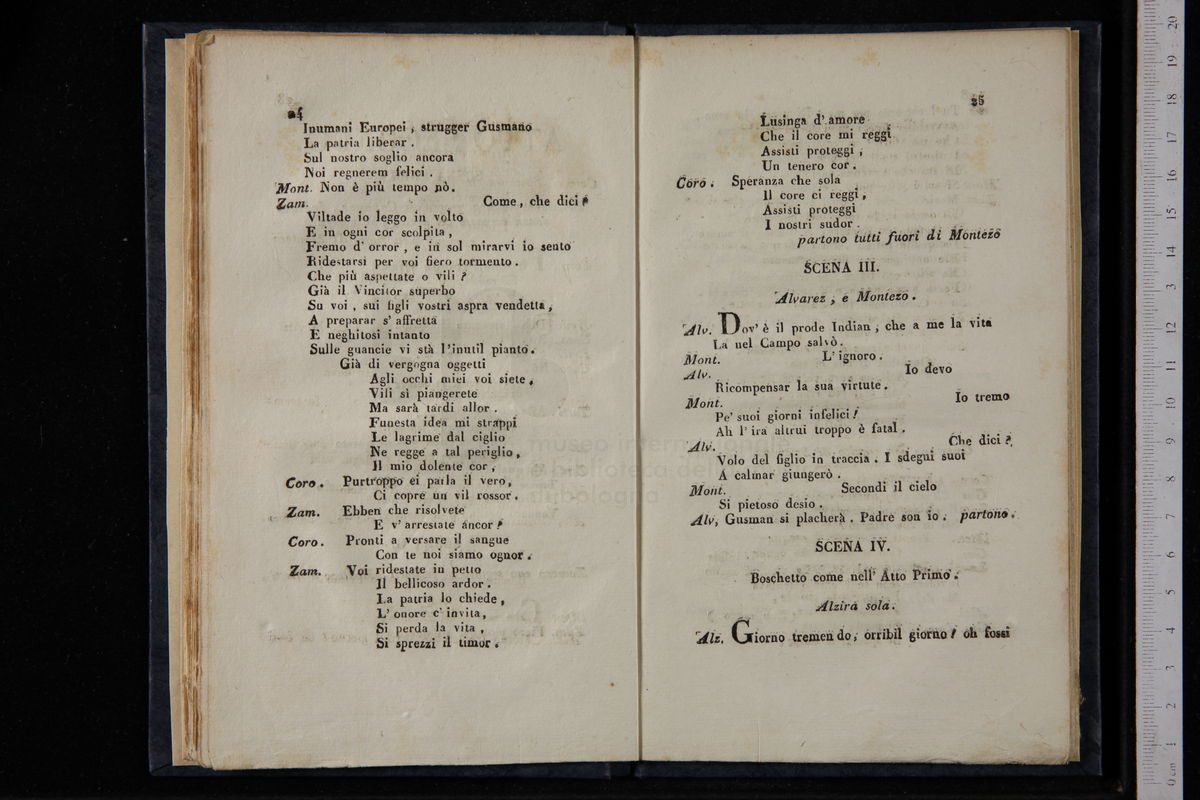 24
Inumani Europei, strugger Gusmano
La patria liberar.
Sul nostro soglio ancora
Noi regnerem felici.
Mont. Non è più tempo nò.
Zam. Come, che dici?
Viltade io leggo in volto
E in ogni cor scolpita,
Fremo d' orror, e in sol mirarvi io sento
Ridestarsi per voi fiero tormento.
Che più aspettate o vili?
Già il Vincitor superbo
Su voi, sui figli vostri aspra vendetta,
A preparar s' affretta
E neghitosi intanto
Sulle guancie vi stà l'inutil pianto.
Già di vergogna oggetti
Agli occhi miei voi siete,
Vili sì piangerete
Ma sarà tardi allor.
Funesta idea mi strappi
Le lagrime dal ciglio
Ne regge a tal periglio,
Il mio dolente cor,
Coro. Purtroppo ei parla il vero,
Ci copre un vil rossor.
Zam. Ebben che risolvete
E v' arrestate ancor?
Coro. Pronti a versare il sangue
Con te noi siamo ognor.
Zam. Voi ridestate in petto
Il bellicoso ardor.
La patria lo chiede,
L' onore c' invita,
Si perda la vita,
Si sprezzi il timor.
25
Lusinga d' amore
Che il core mi reggi
Assisti proteggi,
Un tenero cor.
Coro. Speranza che sola
Il core ci reggi,
Assisti proteggi
I nostri sudor.
partono tutti fuori di Montezo
SCENA III.
Alvarez, e Montezo.
Alv. Dov' è il prode Indian, che a me la vita
La nel Campo salvò.
Mont. L' ignoro.
Alv. Io devo
Ricompensar la sua virtute.
Mont. Io tremo
Pe' suoi giorni infelici!
Ah l' ira altrui troppo è fatal.
Alv. Che dici?
Volo del figlio in traccia. I sdegni suoi
A calmar giungerò.
Mont. Secondi il cielo
Si pietoso desio.
Alv, Gusman si placherà. Padre son io. partono.
SCENA IV.
Boschetto come nell' Atto Primo.
Alzira sola.
Alz. Giorno tremendo, orribil giorno! oh fossi
museo internazionale
e biblioteca della
bologna
0 cm 1 2 3 4 5 6 7 8 9 10 11 12 13 14 15 16 17 18 19 20